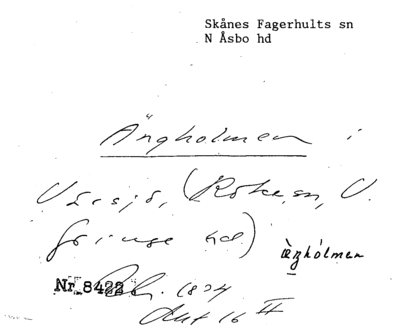 Skånes Fagerhults sn
N Åsbo hd
Ängholmen i
Vesljö, (Röke sn, V.
Göinge hd)
ænghólmen
Nr 8422 1824
Akt 16 II